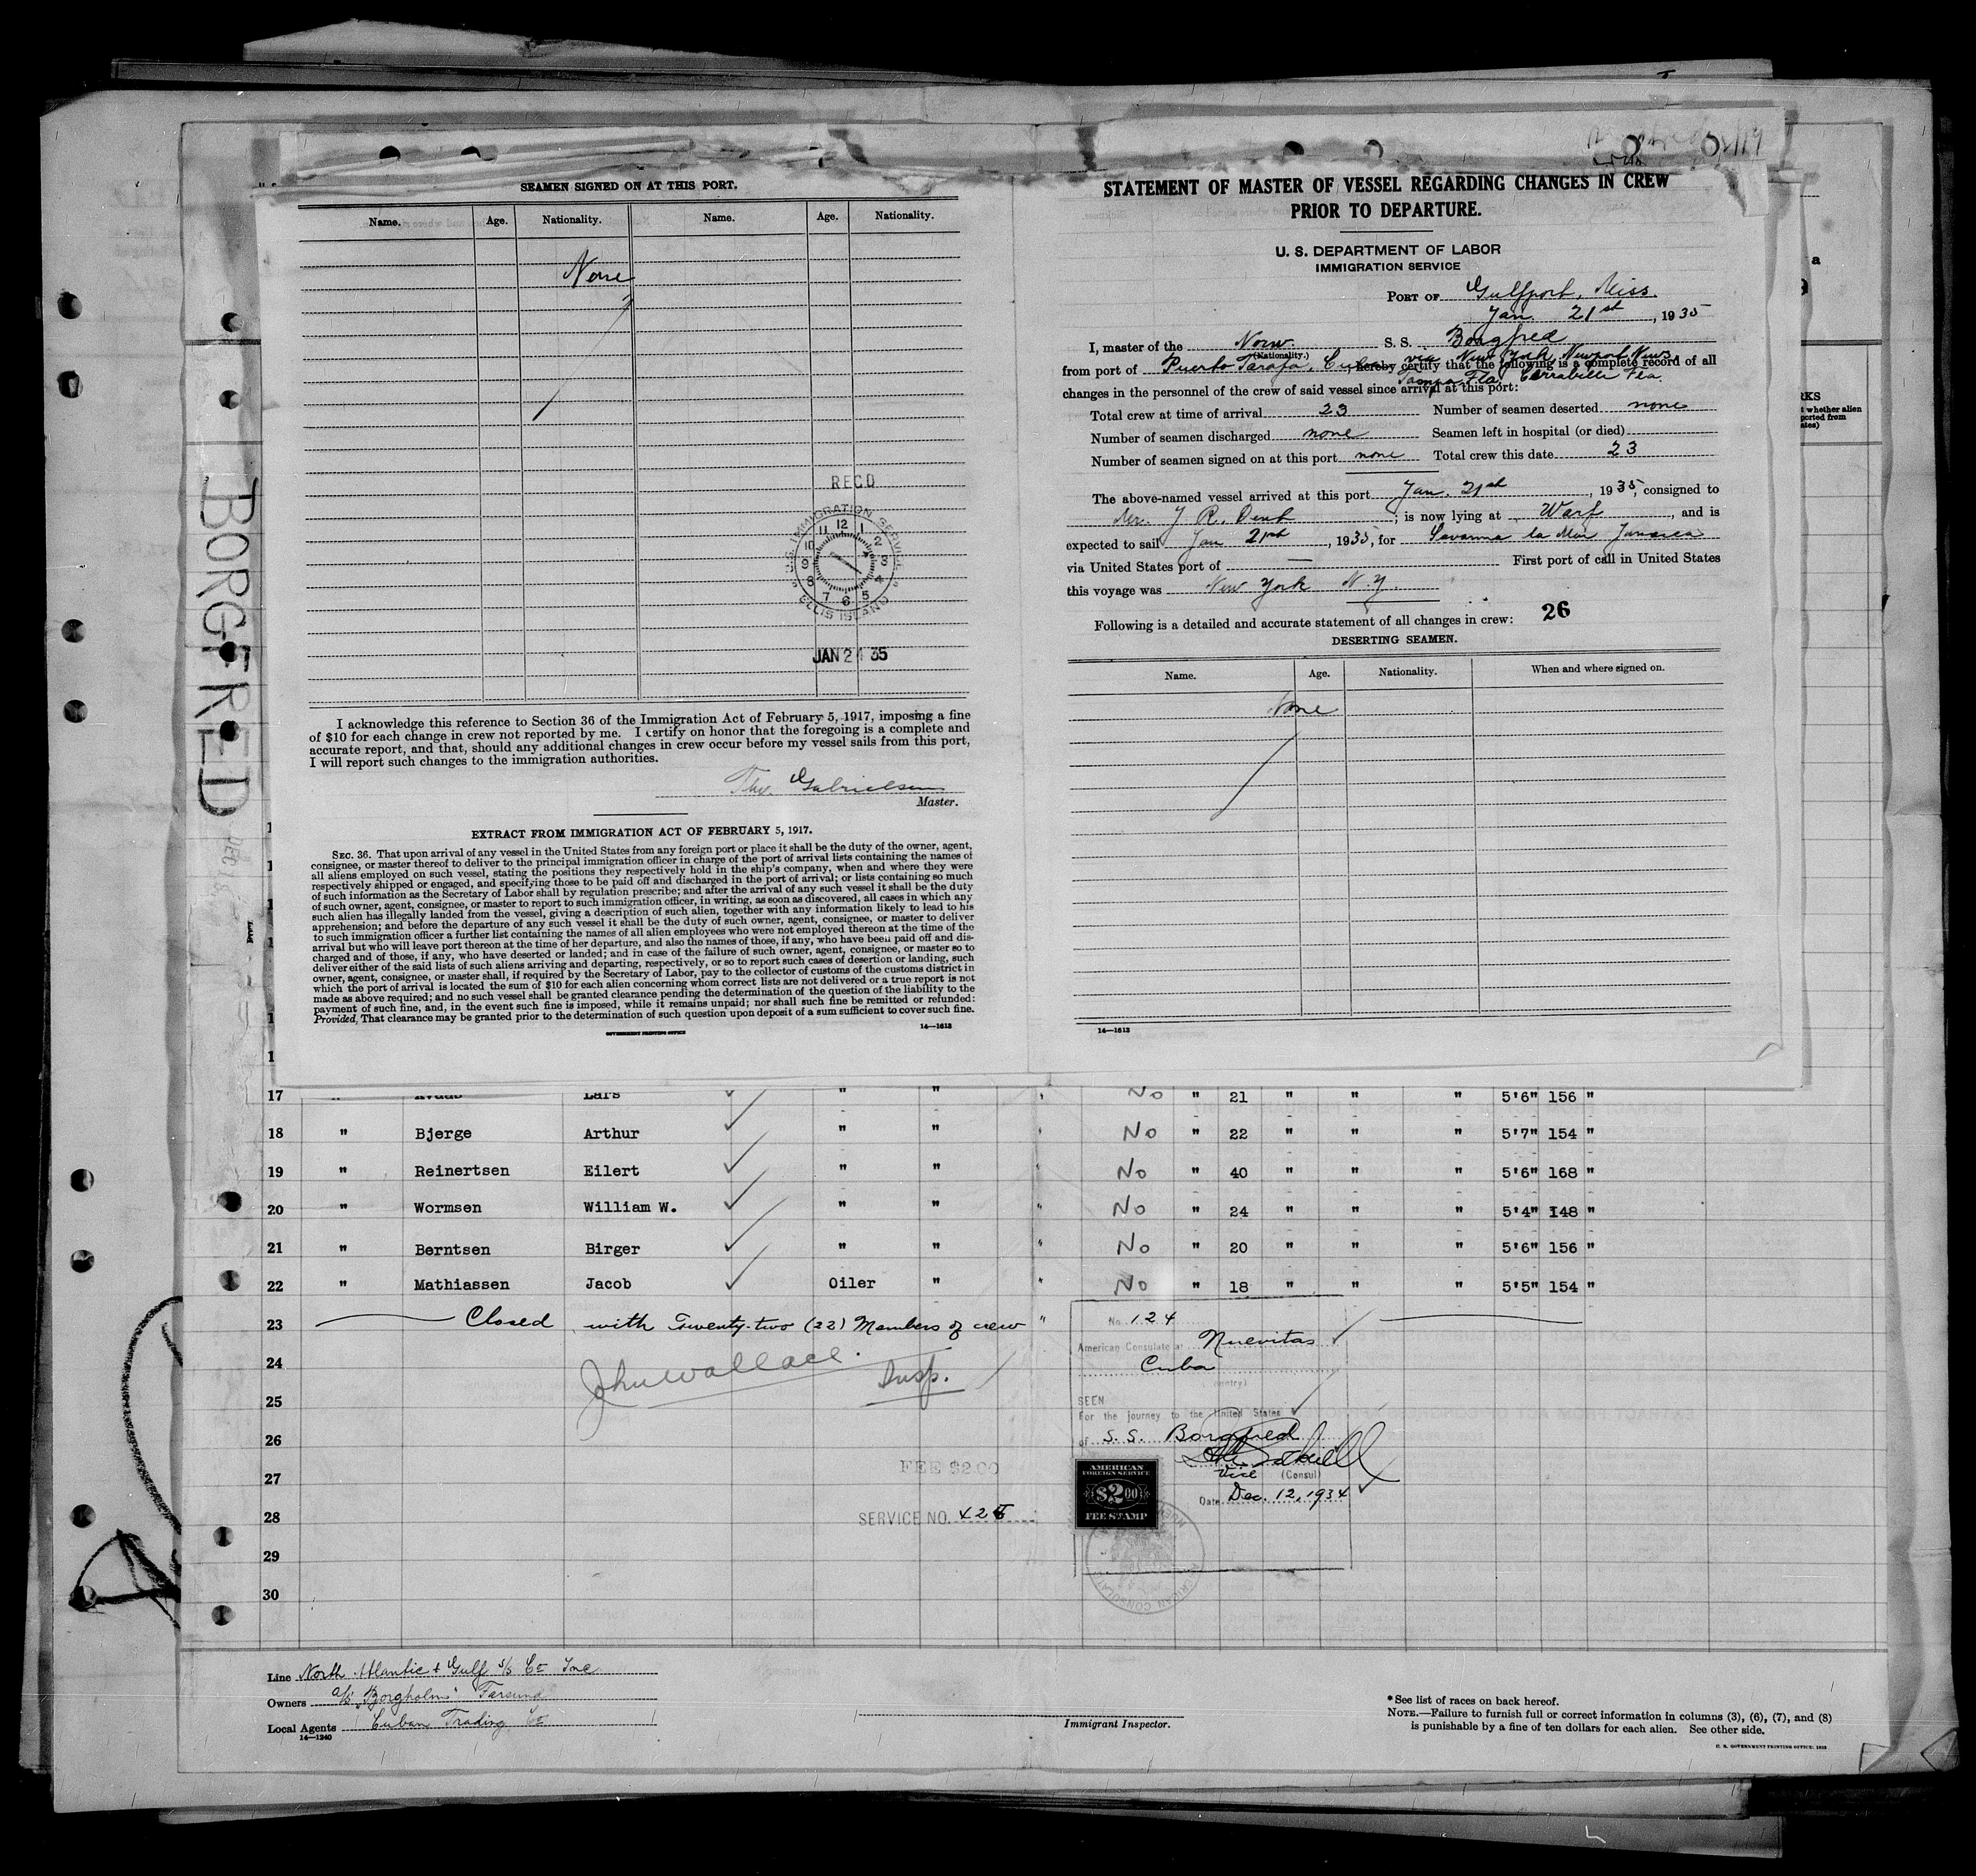 SEAMEN SIGNED ON AT THIS PORT.
Name. Age. Nationality. Name. Age. Nationality.
None
RECD
U.S. IMMIGRATION SERVICE
12 1 2 3 4 5 6 7 8 9 10 11
ELLIS ISLAND
JAN 24 35
I acknowledge this reference to Section 36 of the Immigration Act of February 5, 1917, imposing a fine
of $10 for each change in crew not reported by me. I certify on honor that the foregoing is a complete and
accurate report, and that, should any additional changes in crew occur before my vessel sails from this port,
I will report such changes to the immigration authorities.
Thv. Gabrielsen
Master.
EXTRACT FROM IMMIGRATION ACT OF FEBRUARY 5, 1917.
SEC. 36. That upon arrival of any vessel in the United States from any foreign port or place it shall be the duty of the owner, agent,
consignee, or master thereof to deliver to the principal immigration officer in charge of the port of arrival lists containing the names of
all aliens employed on such vessel, stating the positions they respectively hold in the ship's company, when and where they were
respectively shipped or engaged, and specifying those to be paid off and discharged in the port of arrival; or lists containing so much
of such information as the Secretary of Labor shall by regulation prescribe; and after the arrival of any such vessel it shall be the duty
of such owner, agent, consignee, or master to report to such immigration officer, in writing, as soon as discovered, all cases in which any
such alien has illegally landed from the vessel, giving a description of such alien, together with any information likely to lead to his
apprehension; and before the departure of any such vessel it shall be the duty of such owner, agent, consignee, or master to deliver
to such immigration officer a further list containing the names of all alien employees who were not employed thereon at the time of the
arrival but who will leave port thereon at the time of her departure, and also the names of those, if any, who have been paid off and dis-
charged and of those, if any, who have deserted or landed; and in case of the failure of such owner, agent, consignee, or master so to
deliver either of the said lists of such aliens arriving and departing, respectively, or so to report such cases of desertion or landing, such
owner, agent, consignee, or master shall, if required by the Secretary of Labor, pay to the collector of customs of the customs district in
which the port of arrival is located the sum of $10 for each alien concerning whom correct lists are not delivered or a true report is not
made as above required; and no such vessel shall be granted clearance pending the determination of the question of the liability to the
payment of such fine, and, in the event such fine is imposed, while it remains unpaid; nor shall such fine be remitted or refunded:
Provided, That clearance may be granted prior to the determination of such question upon deposit of a sum sufficient to cover such fine.
GOVERNMENT PRINTING OFFICE 14—1613
STATEMENT OF MASTER OF VESSEL REGARDING CHANGES IN CREW
PRIOR TO DEPARTURE.
U. S. DEPARTMENT OF LABOR
IMMIGRATION SERVICE
PORT OF Gulfport, Miss.
Jan 21st, 1935
I, master of the Norw. S. S. Borgfred
(Nationality.) via New York, Newport News
from port of Puerto Tarafa, Cuba hereby certify that the following is a complete record of all
Tampa Fla, Carrabelle Fla.
changes in the personnel of the crew of said vessel since arrival at this port:
Total crew at time of arrival 23 Number of seamen deserted none
Number of seamen discharged none Seamen left in hospital (or died)
Number of seamen signed on at this port none Total crew this date 23
The above-named vessel arrived at this port Jan. 21st, 1935, consigned to
Mr. J R. Dent; is now lying at Warf, and is
expected to sail Jan 21st, 1935, for Savanna la Mar Jamaica
via United States port of — First port of call in United States
this voyage was New York N.Y.
Following is a detailed and accurate statement of all changes in crew: 26
DESERTING SEAMEN.
Name. Age. Nationality. When and where signed on.
None
14—1613
BORGFRED
17 Lars " " " No " 21 " " " 5'6" 156 "
18 " Bjerge Arthur " " " No " 22 " " " 5'7" 154 "
19 " Reinertsen Eilert " " " No " 40 " " " 5'6" 168 "
20 " Wormsen William W. " " " No " 24 " " " 5'4" 148 "
21 " Berntsen Birger " " " No " 20 " " " 5'6" 156 "
22 " Mathiassen Jacob Oiler " " No " 18 " " " 5'5" 154 "
23 Closed with Twenty-two (22) Members of crew "
24 John Wallace. Insp.
25
26
27
28
29
30
No. 124
American Consulate at Nuevitas
Cuba
(Country)
SEEN
For the journey to the United States
of S. S. Borgfred
Vice (Consul)
Date Dec. 12, 1934
AMERICAN
FOREIGN SERVICE
$2.00
FEE STAMP
FEE $2.00
SERVICE NO.
Line North Atlantic & Gulf S/S Co Inc
Owners A/S "Borgholm" Farsund
Local Agents Cuban Trading Co
14—1240
Immigrant Inspector.
* See list of races on back hereof.
NOTE.—Failure to furnish full or correct information in columns (3), (6), (7), and (8)
is punishable by a fine of ten dollars for each alien. See other side.
U. S. GOVERNMENT PRINTING OFFICE: